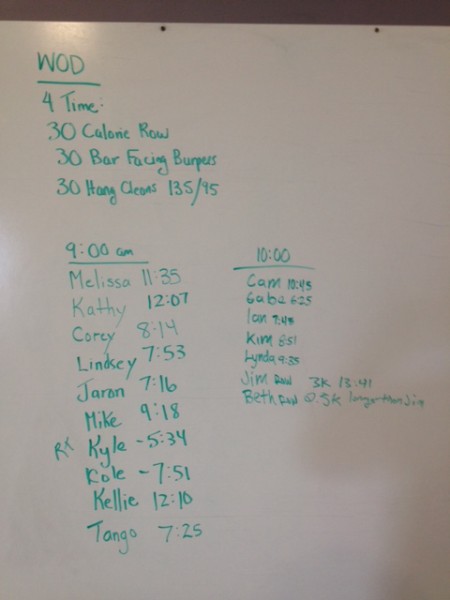 WOD
4 Time:
30 Calorie Row
30 Bar Facing Burpees
30 Hang Cleans 135/95
9:00 am
Melissa 11:35
Kathy 12:07
Corey 8:14
Lindsey 7:53
Jaron 7:16
Mike 9:18
RX Kyle - 5:34
Kole - 7:51
Kellie 12:10
Tango 7:25
10:00
Cam 10:45
Gabe 6:25
Ian 7:48
Kim 8:51
Lynda 9:35
Jim Row 3K 13:41
Beth Row 0.5K longer than Jim